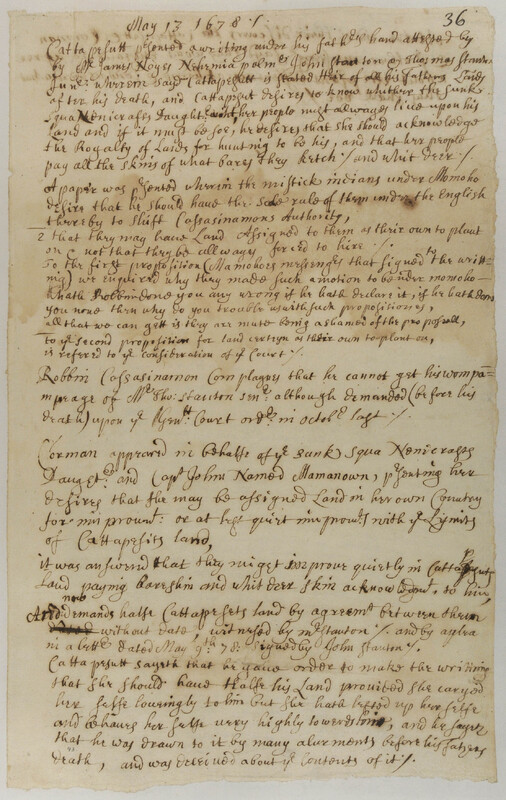 May 13 1678 ./.
36
Cattapesutt psented a writing under his fathrs hand attested by
by Mr James Noyes Nehemia palmer John Stanton & Thomas Stanton
Junr: wherein said Cattapesett is stated heir of all his fathers Lands
after his death, and Cattapesut desires to know whither the sunk
squa Nenicrafts Daughter her people must allwayes live upon his
Land and if it must be soe, he desires that she should acknowledge
the Royalty of Lands for hunting to be his, and that her people
pay all the skins of what bares they ketch / and whit deer /.
A paper was psented wherein the mistick indians under Momoho
desire that he should have the sole rule of them under the English
thereby to shift Cassasinamons Authority,
2 that they may have Land Assigned to them as their own to plant
on & not that they be allwayes forced to hire ./.
To the first proposition (Mamohoes messenges that signed the writt-
ing) we enquired why they made such a motion to be under momoho
hath Robbin done you any wrong if he hath declare it, if he hath done
you none then why do you trouble us with such propositiones,
all that we can gett is they are mute being ashamed of the proposall,
to ye second proposition for land certayn as their own to plant on,
is referred to ye consideration of ye Court ./.
Robbin Cassasinamon Complaynes that he cannot get his wompa-
mpeage of Mr Tho: stanton senr. although demanded (before his
death) upon ye Court ordr in octobr last ./.
Corman appeared in behalfe of ye Sunk Squa Nenicrafts
Daughtr. and Capt John Named Mamanown, psenting her
desires that she may be assigned Land in her own Country
for improvmt: or at lest quiet improvmt with ye Lymits
of Cattapesits land,
it was answered that they might improve quietly in Cattapesuts
Land paying bareskin and whit deer skin acknoledgmt. to him,
now demands halfe Cattapesets land by agreemt between them
without date witnesed by mr stanton ./. and by
in a letter dated May 9th 78 signed by John stanton ./.
Cattapesutt sayeth that he gave order to make the writing
that she should have halfe his Land provided she caryed
her selfe loveingly to him but she hath lifted up her selfe
and behaves her selfe very highly towerds him, and he sayes
that he was drawn to it by many alurments before his fathers
death, and was deceived about ye Contents of it ./.